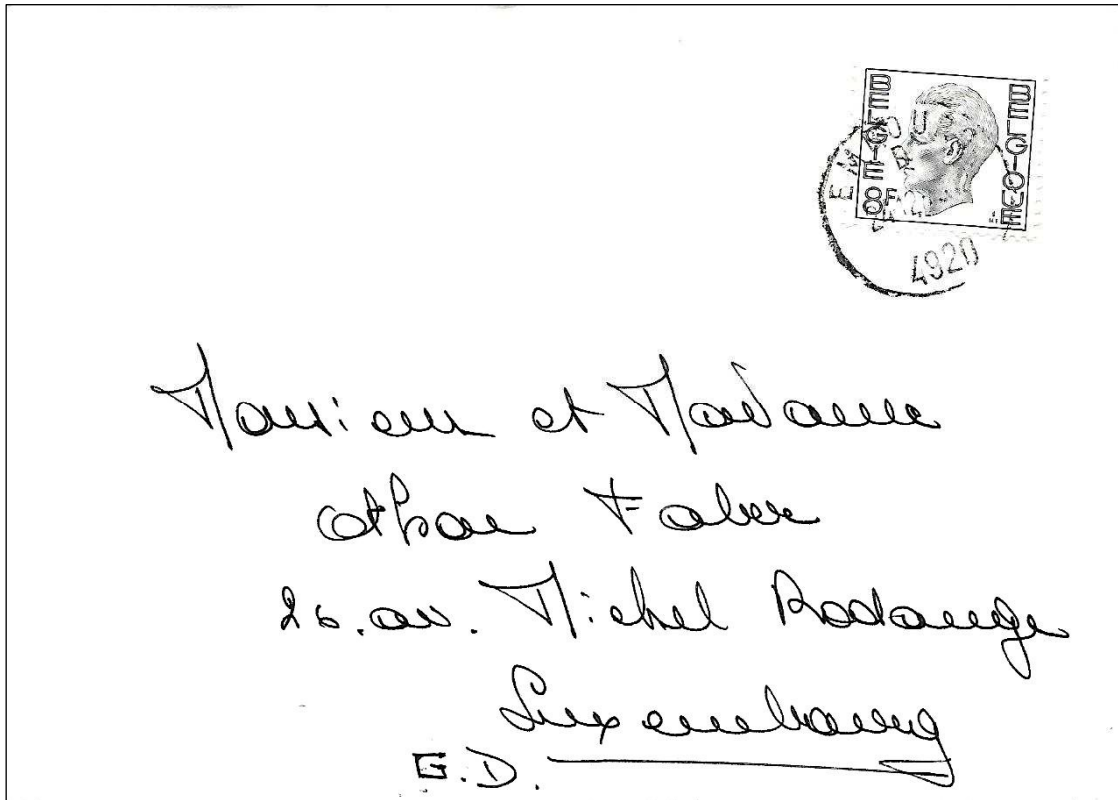 BELGIE 8F BELGIQUE
4920
Monsieur et Madame
Faber
26. av. Michel Rodange
Luxembourg
G.D.